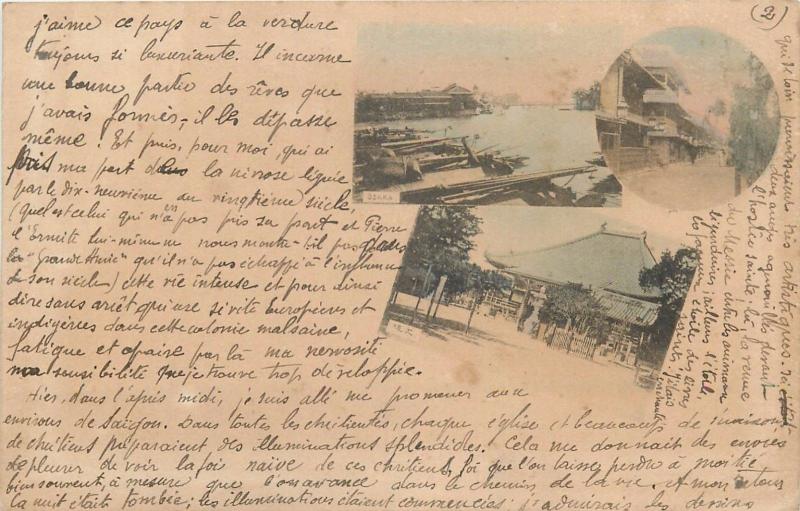 (2)
j'aime ce pays à la verdure
toujours si luxuriante. Il incarne
une bonne partie des rêves que
j'avais formés, il les dépasse
même! Et puis, pour moi, qui ai
pris ma part dans la névrose léguée
par le dix-neuvième au vingtième siècle,
(quel est celui qui n'en a pas pris sa part et Pierre
l'Ermite lui-même nous montre-t-il pas dans
la "Grande Amie" qu'il n'a pas échappé à l'influence
de son siècle) cette vie intense et pour ainsi
dire sans arrêt qui use si vite Européens et
indigènes dans cette colonie malsaine,
fatigue et apaise par là ma nervosité,
ma sensibilité que je trouve trop développée.
Hier, dans l'après midi, je suis allé me promener aux
environs de Saïgon. Dans toutes les chrétientés, chaque église et beaucoup de maisons
de chrétiens préparaient des illuminations splendides. Cela me donnait des envies
de pleurer de voir la foi naïve de ces chrétiens, foi que l'on laisse perdre à moitié
bien souvent, à mesure que l'on avance dans le chemin de la vie. A mon retour
la nuit était tombée; les illuminations étaient commencées; j'admirais les dessins
qui de loin paraissaient très artistiques. Ici
deux anges agenouillés devant
l'hostie sainte, là la venue
du Messie
légendaires, ailleurs l'étoile
la fameuse étoile des Rois
OSAKA